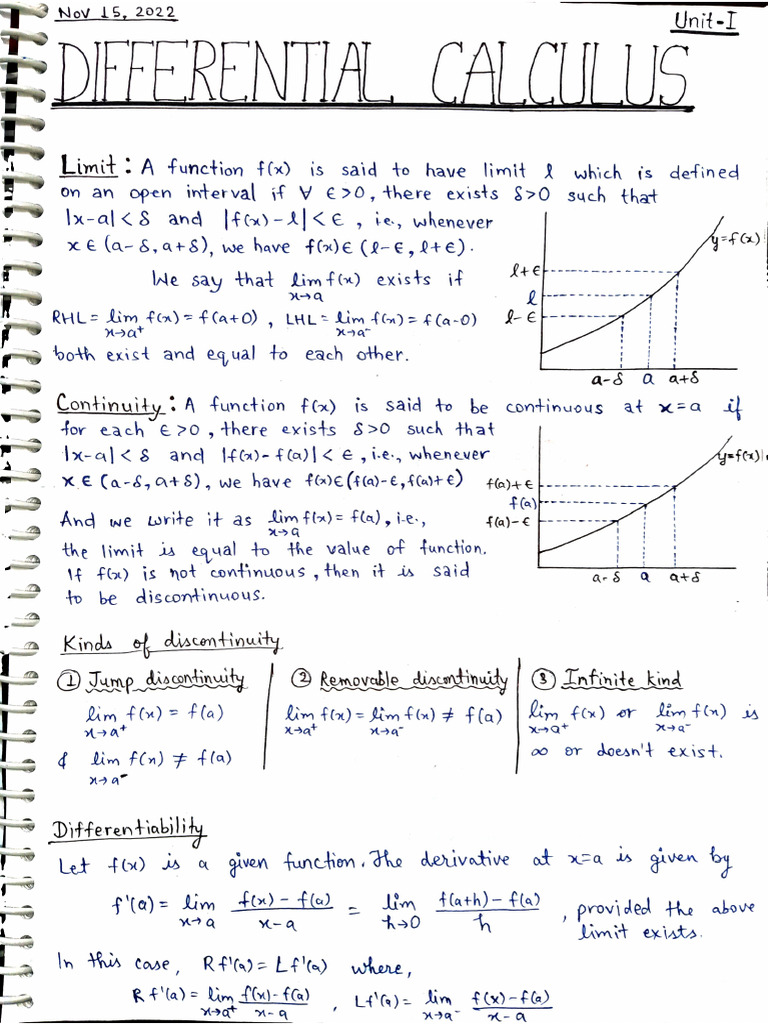 Nov 15, 2022
Unit-I
DIFFERENTIAL CALCULUS
Limit: A function f(x) is said to have limit l which is defined
on an open interval if ∀ ϵ>0, there exists δ>0 such that
|x-a|<δ and |f(x)-l|<ϵ, i.e., whenever
x∈(a-δ, a+δ), we have f(x)∈(l-ϵ, l+ϵ).
We say that lim f(x) exists if
x→a
RHL = lim f(x) = f(a+0), LHL = lim f(x) = f(a-0)
x→a⁺ x→a⁻
both exist and equal to each other.
y=f(x)
l+ϵ
l
l-ϵ
a-δ a a+δ
Continuity: A function f(x) is said to be continuous at x=a if
for each ϵ>0, there exists δ>0 such that
|x-a|<δ and |f(x)-f(a)|<ϵ, i.e., whenever
x∈(a-δ, a+δ), we have f(x)∈(f(a)-ϵ, f(a)+ϵ)
And we write it as lim f(x) = f(a), i.e.,
x→a
the limit is equal to the value of function.
If f(x) is not continuous, then it is said
to be discontinuous.
y=f(x)
f(a)+ϵ
f(a)
f(a)-ϵ
a-δ a a+δ
Kinds of discontinuity
① Jump discontinuity
lim f(x) = f(a)
x→a⁺
& lim f(x) ≠ f(a)
x→a⁻
② Removable discontinuity
lim f(x) = lim f(x) ≠ f(a)
x→a⁺ x→a⁻
③ Infinite kind
lim f(x) or lim f(x) is
x→a⁺ x→a⁻
∞ or doesn't exist.
Differentiability
Let f(x) is a given function. The derivative at x=a is given by
f'(a) = lim f(x)-f(a) = lim f(a+h)-f(a) , provided the above
x→a x-a h→0 h limit exists.
In this case, Rf'(a) = Lf'(a) where,
Rf'(a) = lim f(x)-f(a) , Lf'(a) = lim f(x)-f(a)
x→a⁺ x-a x→a⁻ x-a